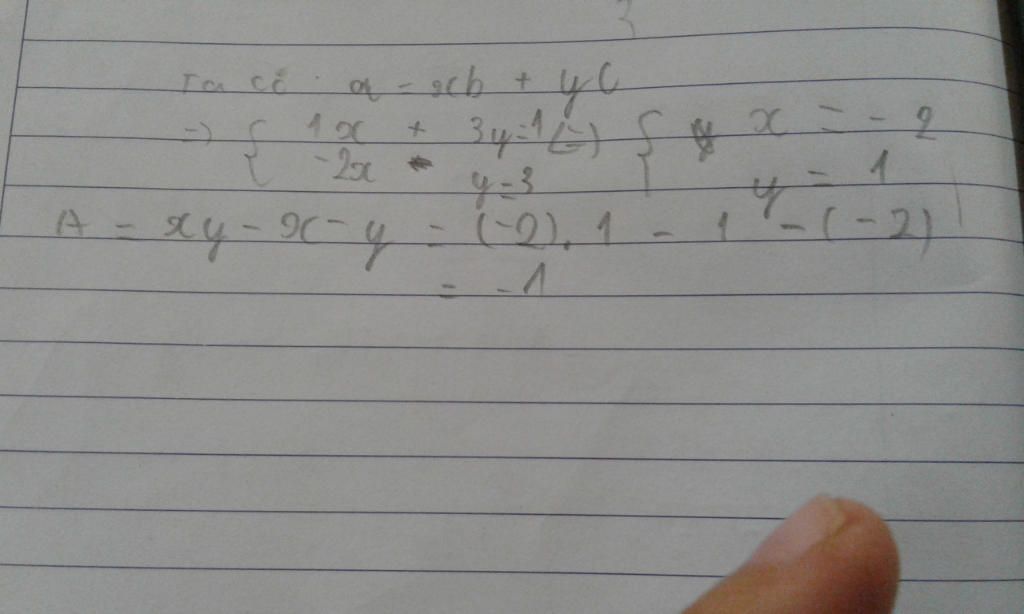 Ta có: a = xb + yc
=> { 1x + 3y=1 (=) { x = -2
-2x - y=3 y = 1
A = xy - x - y = (-2).1 - 1 - (-2)
= -1